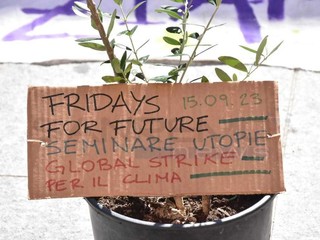 FRIDAYS 15.09.23
FOR FUTURE
SEMINARE UTOPIE
GLOBAL STRIKE
PER IL CLIMA